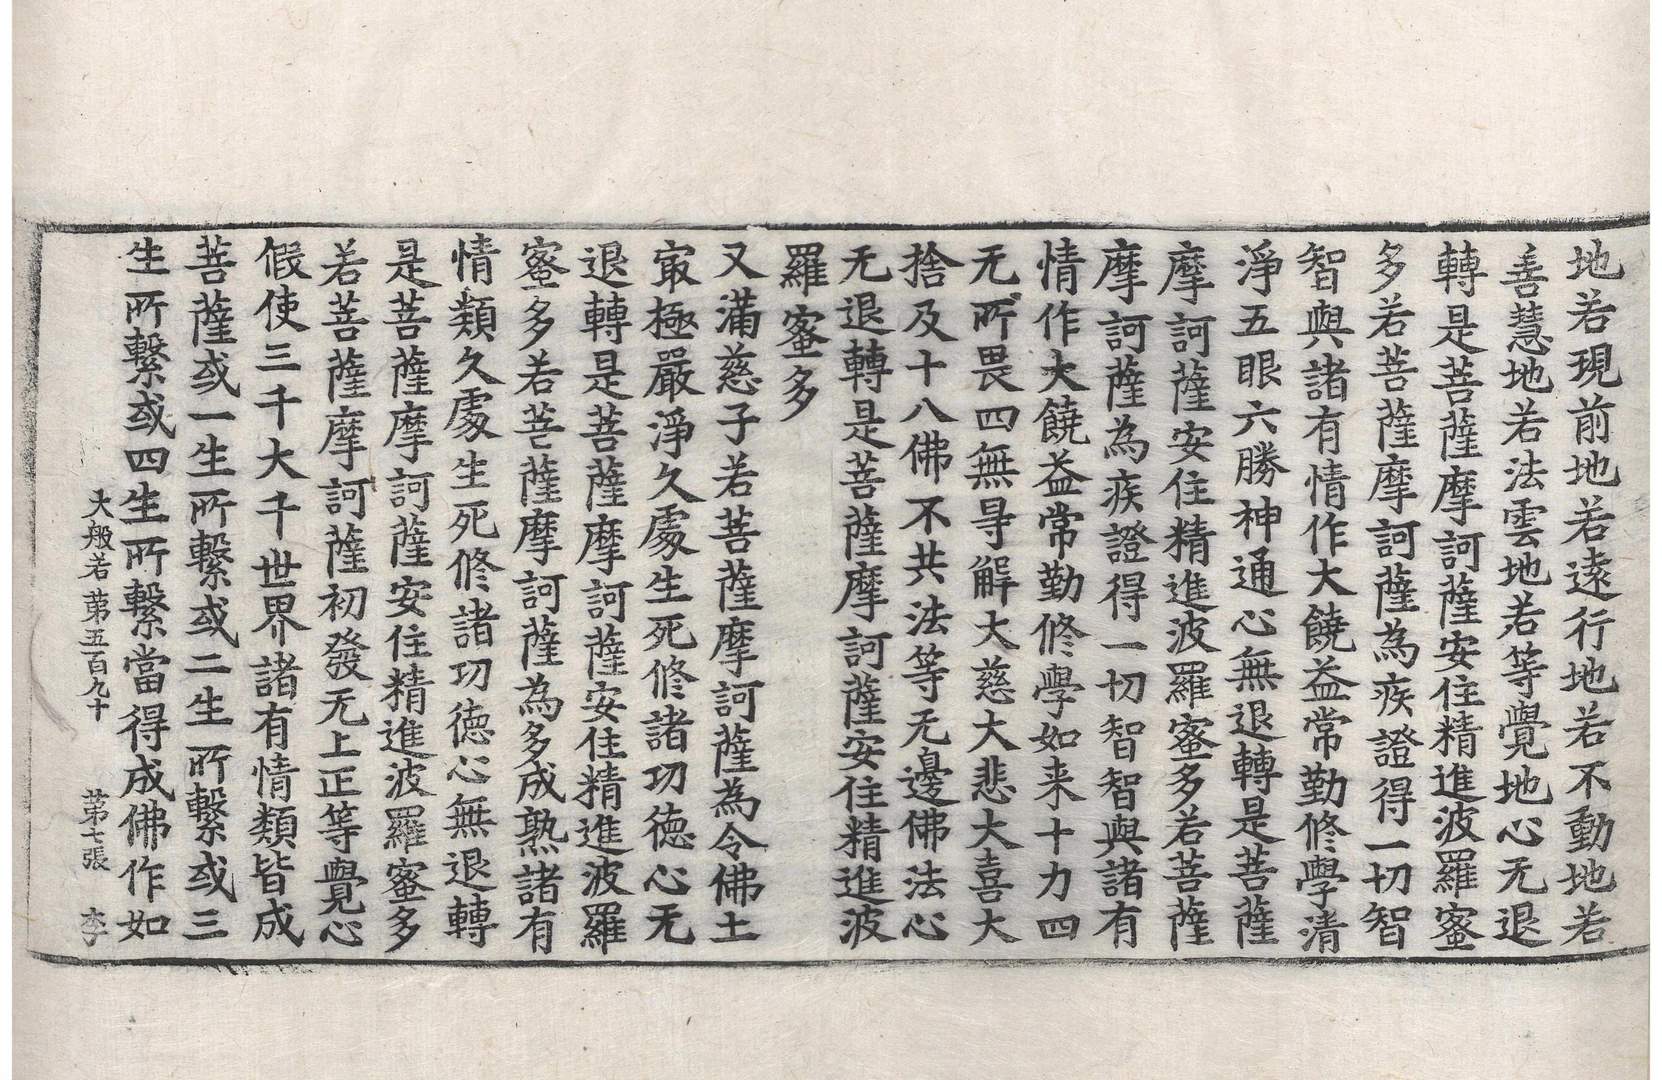 地若現前地若遠行地若不動地若
善慧地若法雲地若等覺地心无退
轉是菩薩摩訶薩安住精進波羅蜜
多若菩薩摩訶薩為疾證得一切智
智與諸有情作大饒益常勤修學清
淨五眼六勝神通心無退轉是菩薩
摩訶薩安住精進波羅蜜多若菩薩
摩訶薩為疾證得一切智智與諸有
情作大饒益常勤修學如来十力四
无所畏四無㝵解大慈大悲大喜大
捨及十八佛不共法等无邊佛法心
无退轉是菩薩摩訶薩安住精進波
羅蜜多
又滿慈子若菩薩摩訶薩為令佛土
㝡極嚴淨久處生死修諸功德心无
退轉是菩薩摩訶薩安住精進波羅
蜜多若菩薩摩訶薩為多成熟諸有
情類久處生死修諸功德心無退轉
是菩薩摩訶薩安住精進波羅蜜多
若菩薩摩訶薩初發无上正等覺心
假使三千大千世界諸有情類皆成
菩薩或一生所繫或二生所繫或三
生所繫或四生所繫當得成佛作如
大般若第五百九十 第七張 李